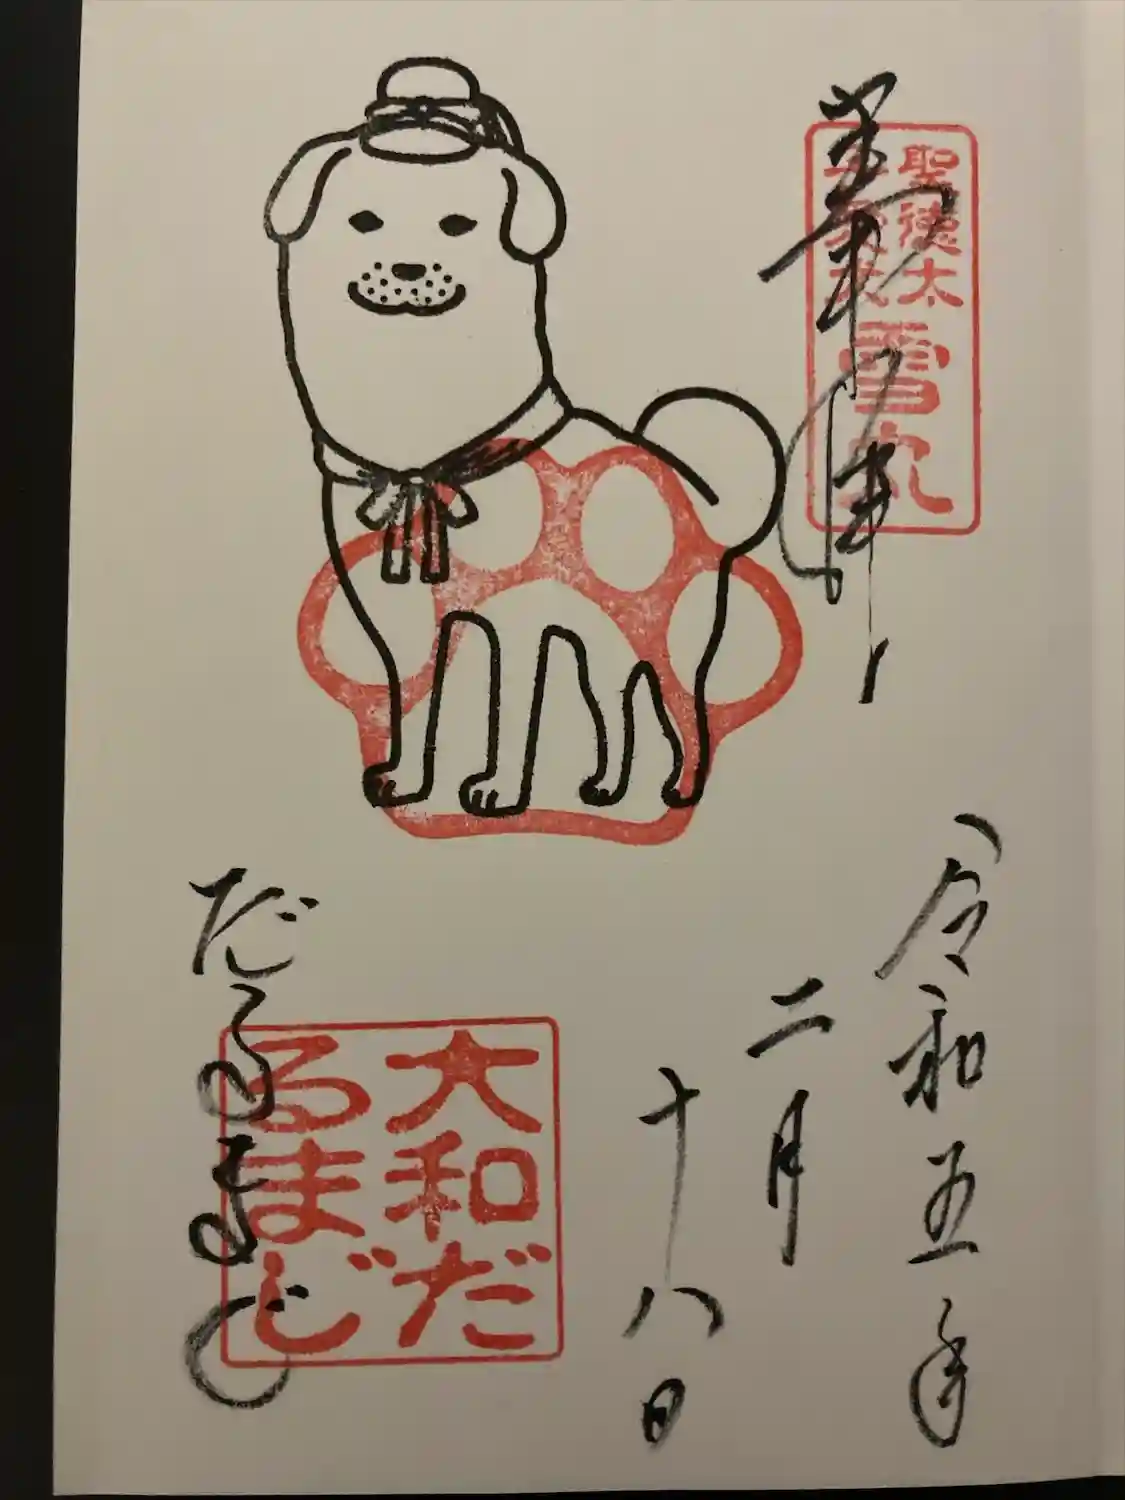 奉拝
聖徳太
子愛犬
雪丸
令和五年
二月
十八日
大和だ
るまじ
だるまじ